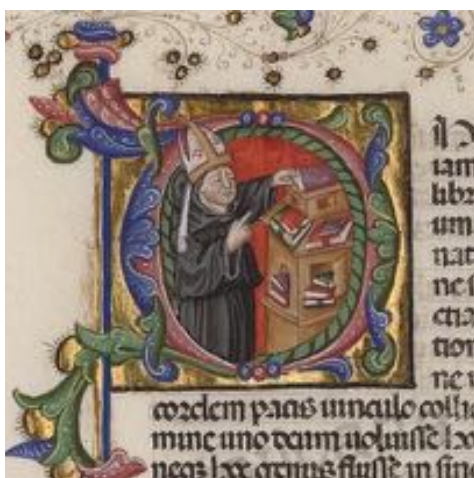 iam
libr
um
nat
ne
tion
ne
cordem pacis uinculo colli
mine uno deum uoluisse ho
neqꝫ hoc genus fuisse in sin